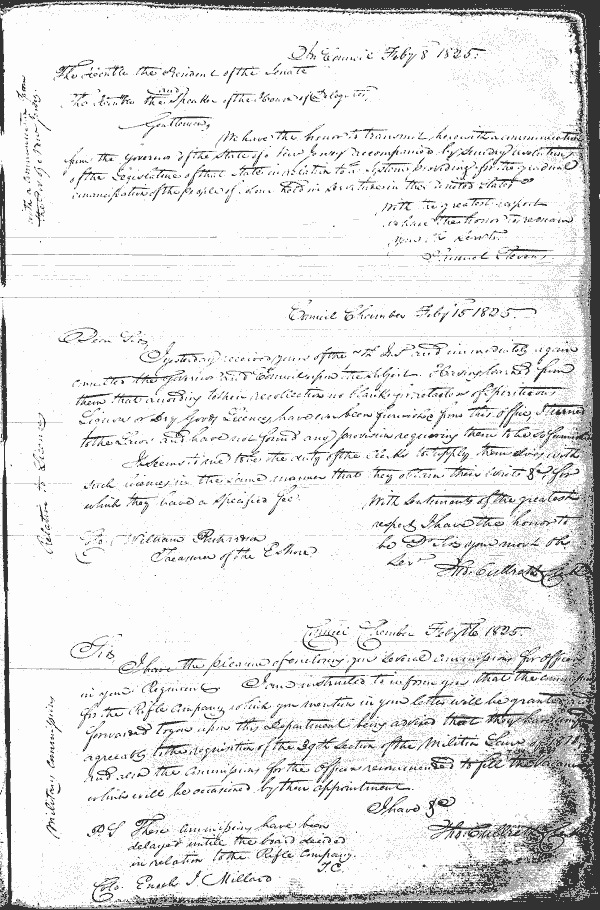 In Council Feby 8 1825.
The Honble the President of the Senate
and
The Honble the Speaker of the House of Delegates,
Gentlemen,
We have the honor to transmit herewith a communication
from the Governor of the State of New Jersey accompanied by Sundry resolutions
of the Legislature of that State in relation to a System providing for the gradual
emancipation of the people of Colour held in Servitude in the United States
With the greatest respect
we have the honor to remain
your
Samuel Stevens
with a communication from
the Gov of New Jersey.
Council Chamber Feby 15 1825.
Dear Sir,
I yesterday received yours of the and immediately again
consulted the Governor and Council upon the Subject. Having learned from
them that according to their recollection no blanks of Spirituous
Liquors or Dry Goods Licences have ever been furnished from this office, I turned
to the Laws and have not found any provision requiring them to be so furnished
It seems to me to be the duty of the Clerks to supply them selves with
such licences in the same manner that they obtain their Writs &c for
which they have a Specified fee.
With Sentiments of the greatest
respect I have the honor to
be Dr Sir your most Ob
Servt
Tho. Culbreth Clk
To William Richardson
Treasurer of the E Shore
Relation to Licences
Council Chamber Feby 16 1825.
Sir
I have the pleasure of enclosing you Several commissions for Officers
in your Regiment. I am instructed to inform you that the commissions
for the Rifle Company which you mention in your letter will be granted and
forwarded to you upon this Department being advised that they have
agreeably to the requisition of the 39th Section of the Militia Law of
and also the Commissions for the Officers recommended to fill the Vacancies
which will be occasioned by their appointment
I have &c
Tho. Culbreth Clk
PS These Commissions have been
delayed untill the board decided
in relation to the Rifle Company.
T.C.
Colo. Enoch J. Millard
Military Commissions